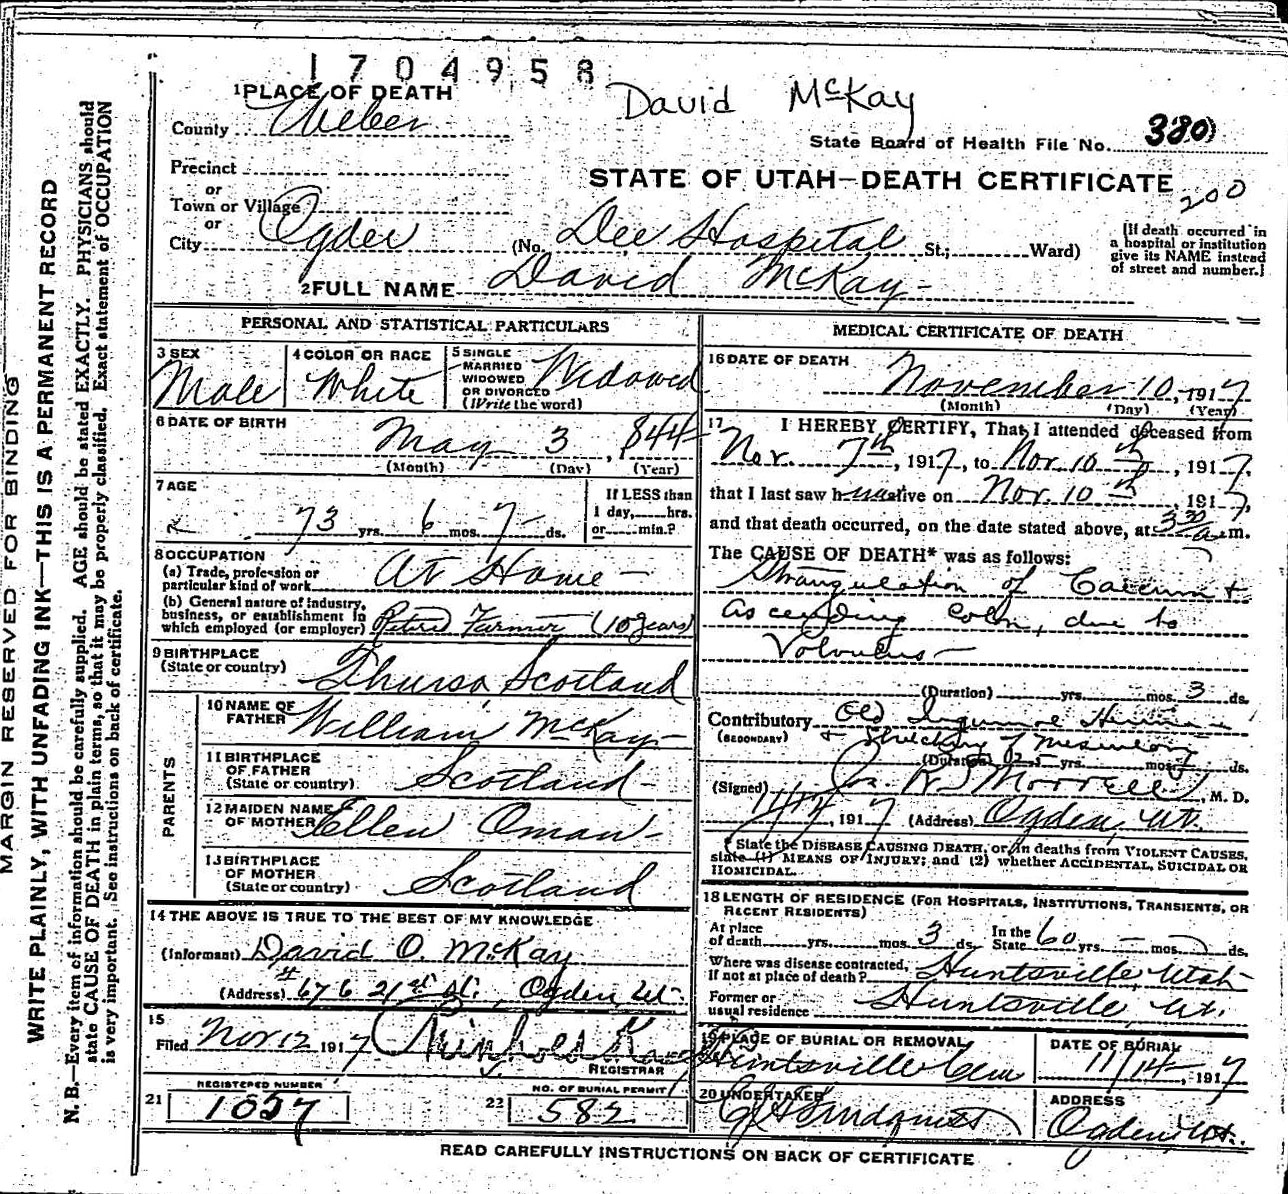 1704958
David McKay
1 PLACE OF DEATH
County Weber
State Board of Health File No. 380
Precinct
or
STATE OF UTAH—DEATH CERTIFICATE
200
Town or Village
or
City Ogden (No. Dee Hospital St.; Ward)
[If death occurred in a hospital or institution give its NAME instead of street and number.]
2 FULL NAME David McKay
PERSONAL AND STATISTICAL PARTICULARS
3 SEX Male
4 COLOR OR RACE White
5 SINGLE MARRIED WIDOWED OR DIVORCED (Write the word) Widowed
6 DATE OF BIRTH May 3, 1844
(Month) (Day) (Year)
7 AGE 73 yrs. 6 mos. 7 ds.
If LESS than 1 day, hrs. or min.?
8 OCCUPATION
(a) Trade, profession or particular kind of work At Home
(b) General nature of industry, business, or establishment in which employed (or employer) Retired Farmer (10 years)
9 BIRTHPLACE
(State or country) Thurso Scotland
PARENTS
10 NAME OF FATHER William McKay
11 BIRTHPLACE OF FATHER (State or country) Scotland
12 MAIDEN NAME OF MOTHER Ellen Oman
13 BIRTHPLACE OF MOTHER (State or country) Scotland
14 THE ABOVE IS TRUE TO THE BEST OF MY KNOWLEDGE
(Informant) David O. McKay
(Address) # 676 21st St., Ogden, Ut.
15
Filed Nov 12 1917
REGISTRAR
21 REGISTERED NUMBER 1057
22 NO. OF BURIAL PERMIT 582
MEDICAL CERTIFICATE OF DEATH
16 DATE OF DEATH November 10, 1917
(Month) (Day) (Year)
17 I HEREBY CERTIFY, That I attended deceased from
Nov. 7th, 1917, to Nov. 10th, 1917,
that I last saw him alive on Nov. 10th, 1917,
and that death occurred, on the date stated above, at 3 30 a.m.
The CAUSE OF DEATH* was as follows:
Strangulation of Caecum +
ascending Colon, due to
Volvulus
(Duration) yrs. mos. 3 ds.
Contributory Old Inguinal Hernia
(SECONDARY) + stretching of mesentery
(Duration) yrs. mos. ds.
(Signed) R. Morrell, M. D.
1917 (Address) Ogden, Ut.
* State the DISEASE CAUSING DEATH, or, in deaths from VIOLENT CAUSES, state (1) MEANS OF INJURY; and (2) whether ACCIDENTAL, SUICIDAL OR HOMICIDAL.
18 LENGTH OF RESIDENCE (FOR HOSPITALS, INSTITUTIONS, TRANSIENTS, OR RECENT RESIDENTS)
At place of death yrs. mos. 3 ds. In the State 60 yrs. mos. ds.
Where was disease contracted, if not at place of death? Huntsville, Utah
Former or usual residence Huntsville, Ut.
19 PLACE OF BURIAL OR REMOVAL Huntsville Cem
DATE OF BURIAL 11/14, 1917
20 UNDERTAKER Lindquist
ADDRESS Ogden, Ut.
READ CAREFULLY INSTRUCTIONS ON BACK OF CERTIFICATE
MARGIN RESERVED FOR BINDING
WRITE PLAINLY, WITH UNFADING INK—THIS IS A PERMANENT RECORD
N. B.—Every item of information should be carefully supplied. AGE should be stated EXACTLY. PHYSICIANS should
state CAUSE OF DEATH in plain terms, so that it may be properly classified. Exact statement of OCCUPATION
is very important. See instructions on back of certificate.